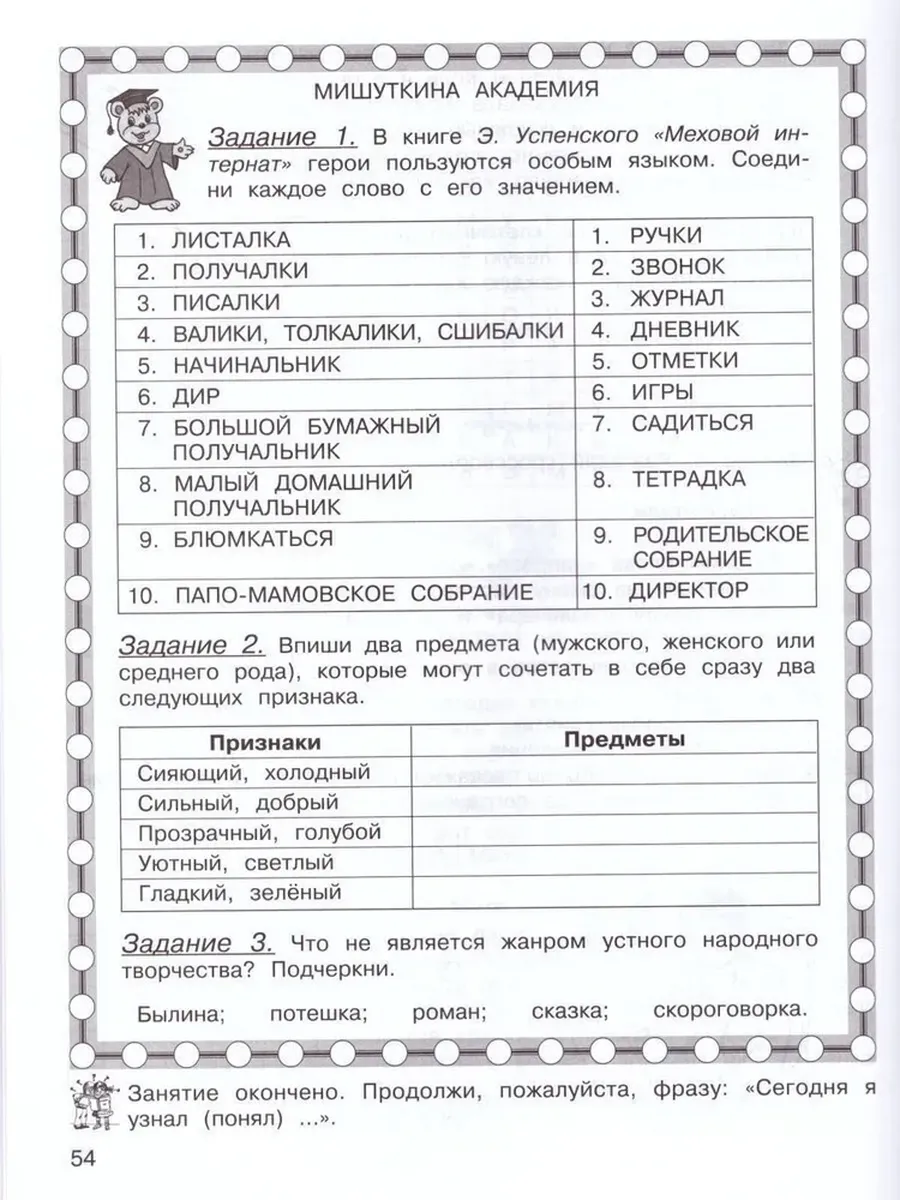 МИШУТКИНА АКАДЕМИЯ
Задание 1. В книге Э. Успенского «Меховой ин-
тернат» герои пользуются особым языком. Соеди-
ни каждое слово с его значением.
1. ЛИСТАЛКА
1. РУЧКИ
2. ПОЛУЧАЛКИ
2. ЗВОНОК
3. ПИСАЛКИ
3. ЖУРНАЛ
4. ВАЛИКИ, ТОЛКАЛИКИ, СШИБАЛКИ
4. ДНЕВНИК
5. НАЧИНАЛЬНИК
5. ОТМЕТКИ
6. ДИР
6. ИГРЫ
7. БОЛЬШОЙ БУМАЖНЫЙ
ПОЛУЧАЛЬНИК
7. САДИТЬСЯ
8. МАЛЫЙ ДОМАШНИЙ
ПОЛУЧАЛЬНИК
8. ТЕТРАДКА
9. БЛЮМКАТЬСЯ
9. РОДИТЕЛЬСКОЕ
СОБРАНИЕ
10. ПАПО-МАМОВСКОЕ СОБРАНИЕ
10. ДИРЕКТОР
Задание 2. Впиши два предмета (мужского, женского или
среднего рода), которые могут сочетать в себе сразу два
следующих признака.
Признаки
Предметы
Сияющий, холодный
Сильный, добрый
Прозрачный, голубой
Уютный, светлый
Гладкий, зелёный
Задание 3. Что не является жанром устного народного
творчества? Подчеркни.
Былина; потешка; роман; сказка; скороговорка.
Занятие окончено. Продолжи, пожалуйста, фразу: «Сегодня я
узнал (понял) ...».
54